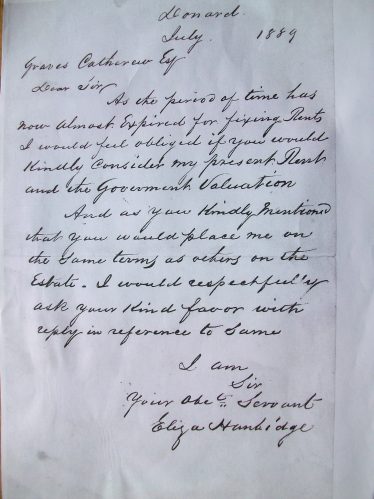 Donard.
July. 1889
Graves Cathcrew Esq
Dear Sir,
As the period of time has
now almost Expired for fixing Rents
I would feel obliged if you would
Kindly Consider my present Rent
and the Goverment Valuation
And as you Kindly Mentioned
that you would place me on
the Same terms as others on the
Estate. I would respectful'y
ask your Kind favor with
reply in reference to Same
I am
Sir
Your Obe.t Servant
Eliza Hanbidge